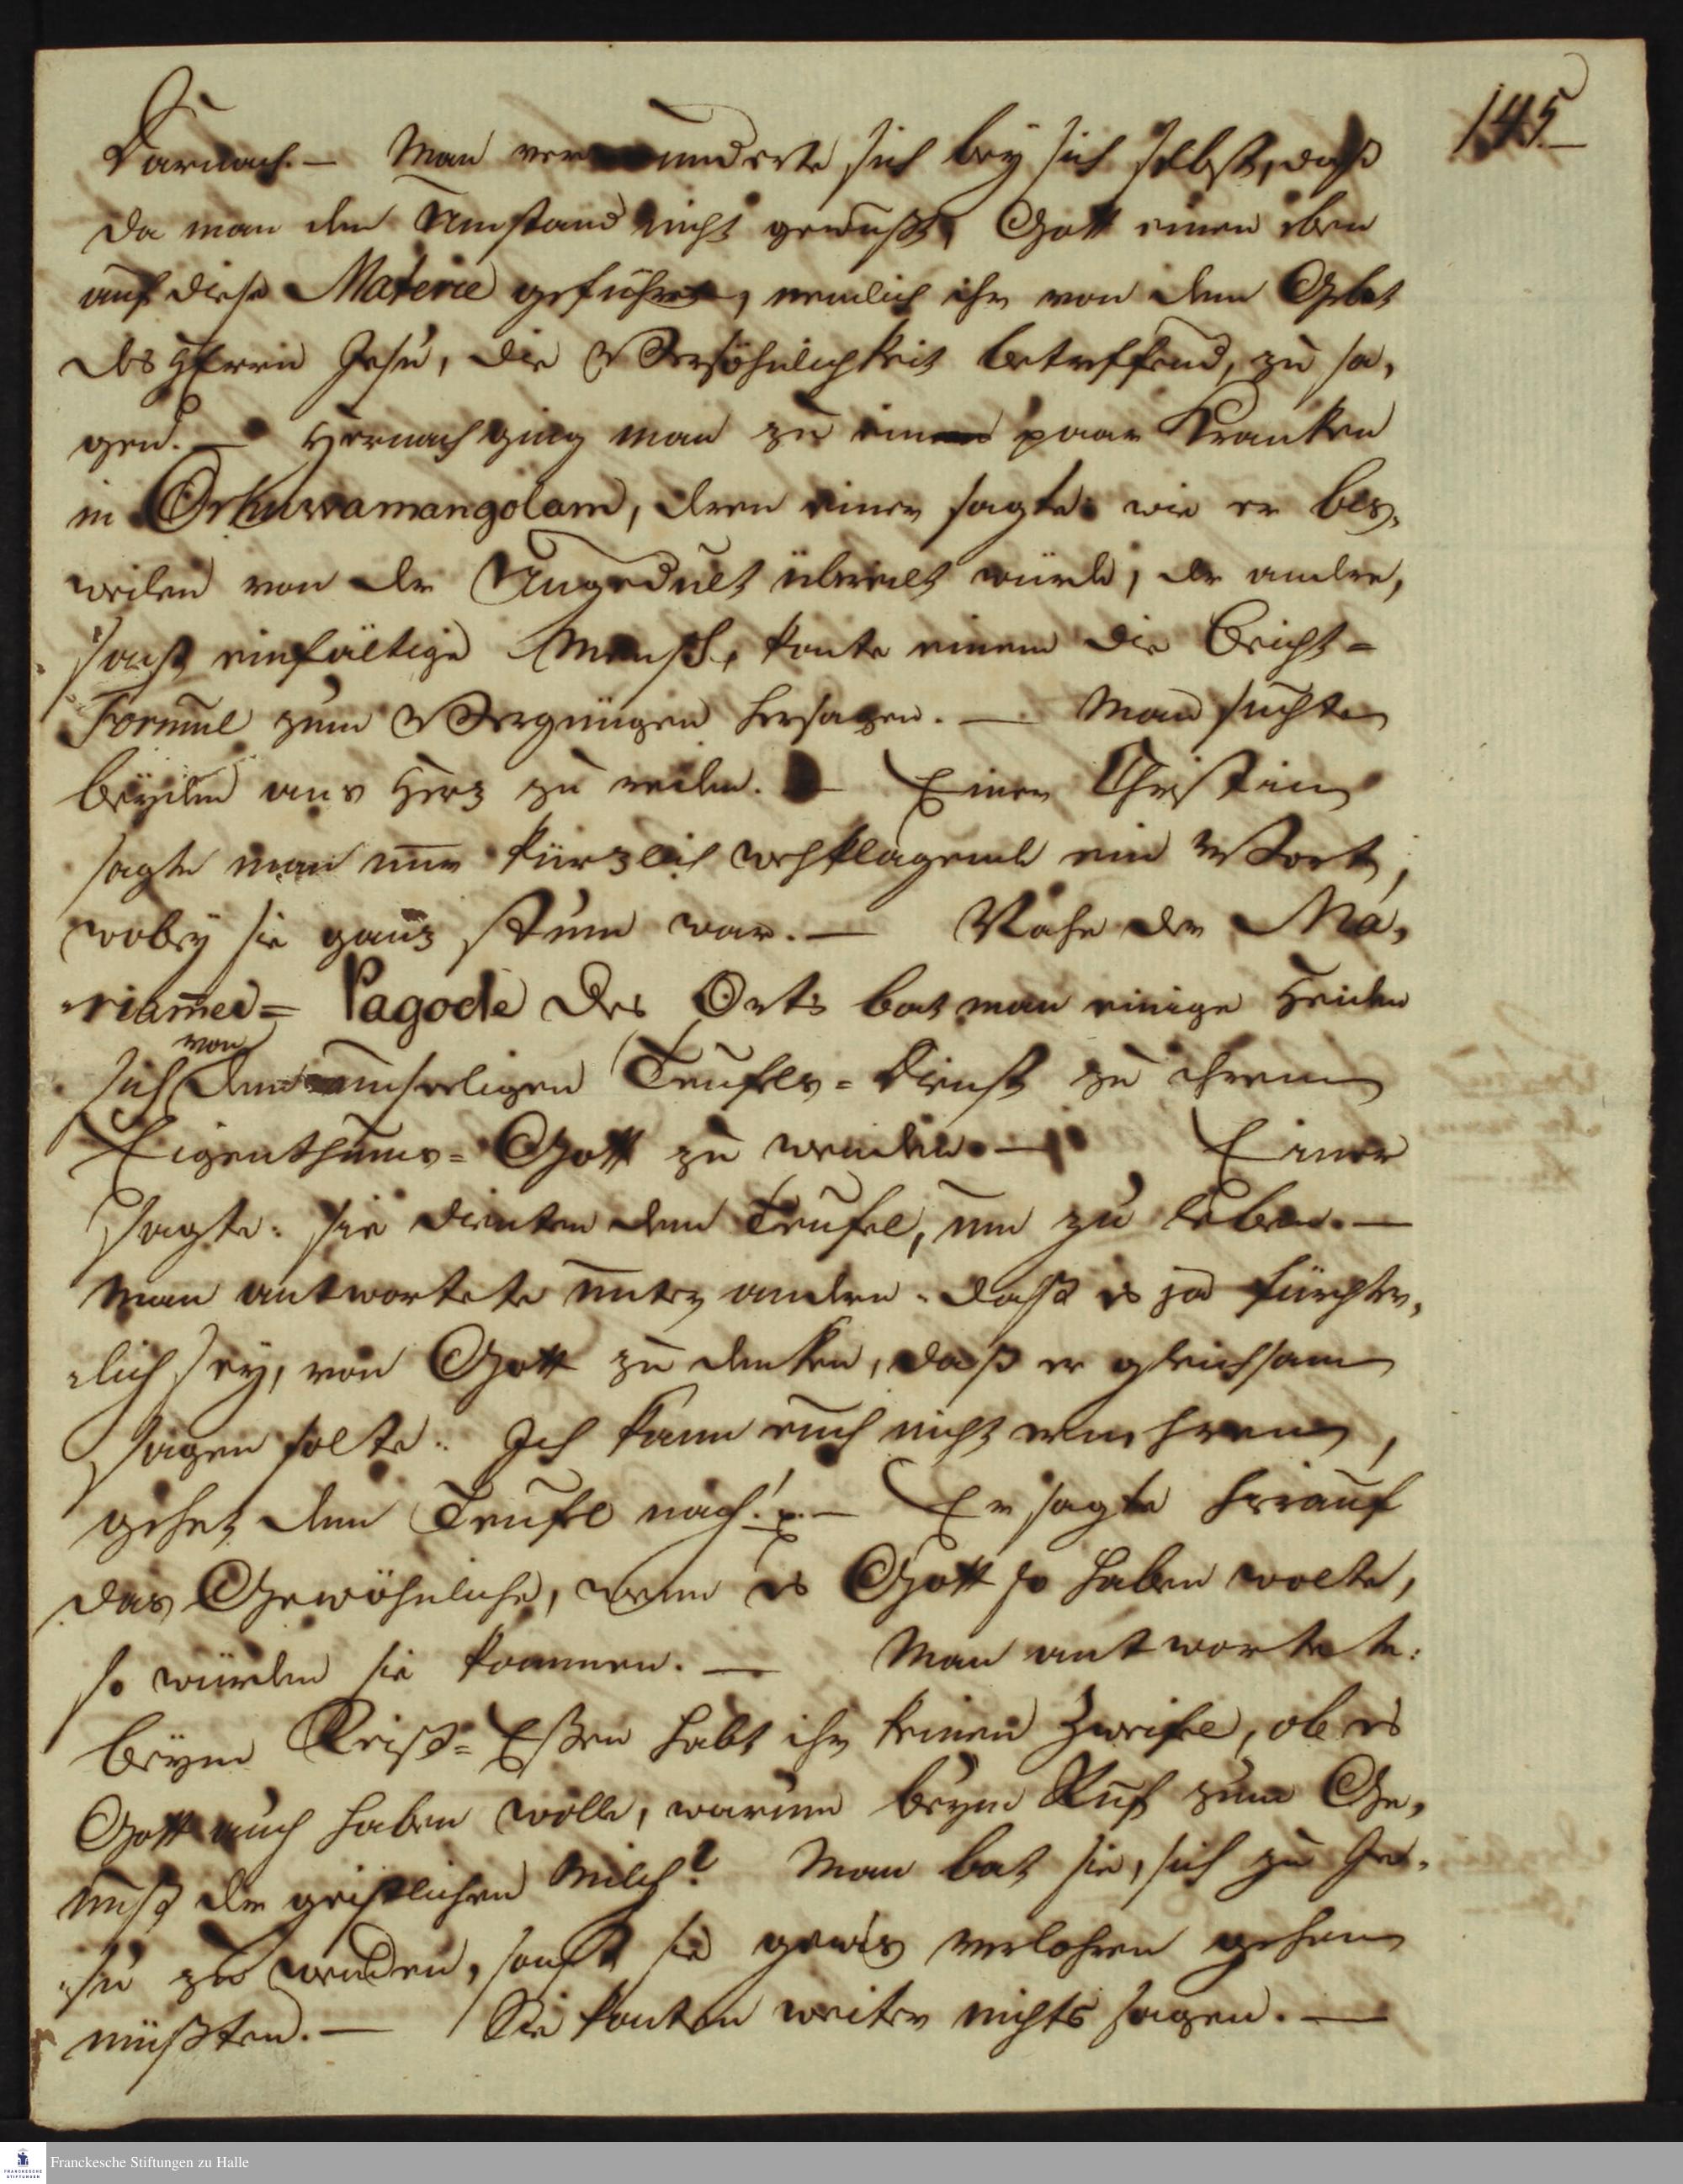 145.
Darnach. — Man verwunderte sich bey sich selbst, daß
da man den Umstand nicht gewußt, Gott einen eben
auf diese Materie geführet, nemlich ihr von dem Gebot
des HErrn Jesu, die Versöhnlichkeit betreffend, zu sa,
gen. — Hernach ging man zu ein paar Kranken
in Orhuwamangolam, deren einer sagte wie er bis,
weilen von der Ungedult übereilt würde, der andre,
sonst einfältige Mensch, konte einem die Beicht=
Formul zum Vergnügen hersagen. — Man suchte
beyden ans Herz zu reden. — Einer Christin
sagte man nur kürzlich wehklagend ein Wort,
wobey sie ganz stum war. — Nahe der Ma,
riam̅ei= Pagode des Orts bat man einige Heiden
sich von dem unseeligen Teufels=Dienst zu ihrem
Eigenthums=Gott zu wenden. — Einer
sagte: sie dienten dem Teufel, um zu leben. —
Man antwortete unter andern: daß es ja fürchter,
lich sey, von Gott zu denken, daß er gleichsam
sagen solte: Ich kann euch nicht ernehren,
gehet dem Teufel nach! — Er sagte hierauf
das Gewöhnliche, wenn es Gott so haben wolte,
so würden sie kommen. — Man antwortete:
beym Reiß=Eßen habt ihr keinen Zweifel, ob es
Gott auch haben wolle, warum beym Ruf zum Ge,
nuß der geistlichen Milch? Man bat sie, sich zu Je,
su zu wenden, sonst sie gewis verlohren gehen
müßten. — Sie konten weiter nichts sagen. —
Franckesche Stiftungen zu Halle
FRANCKESCHE
STIFTUNGEN